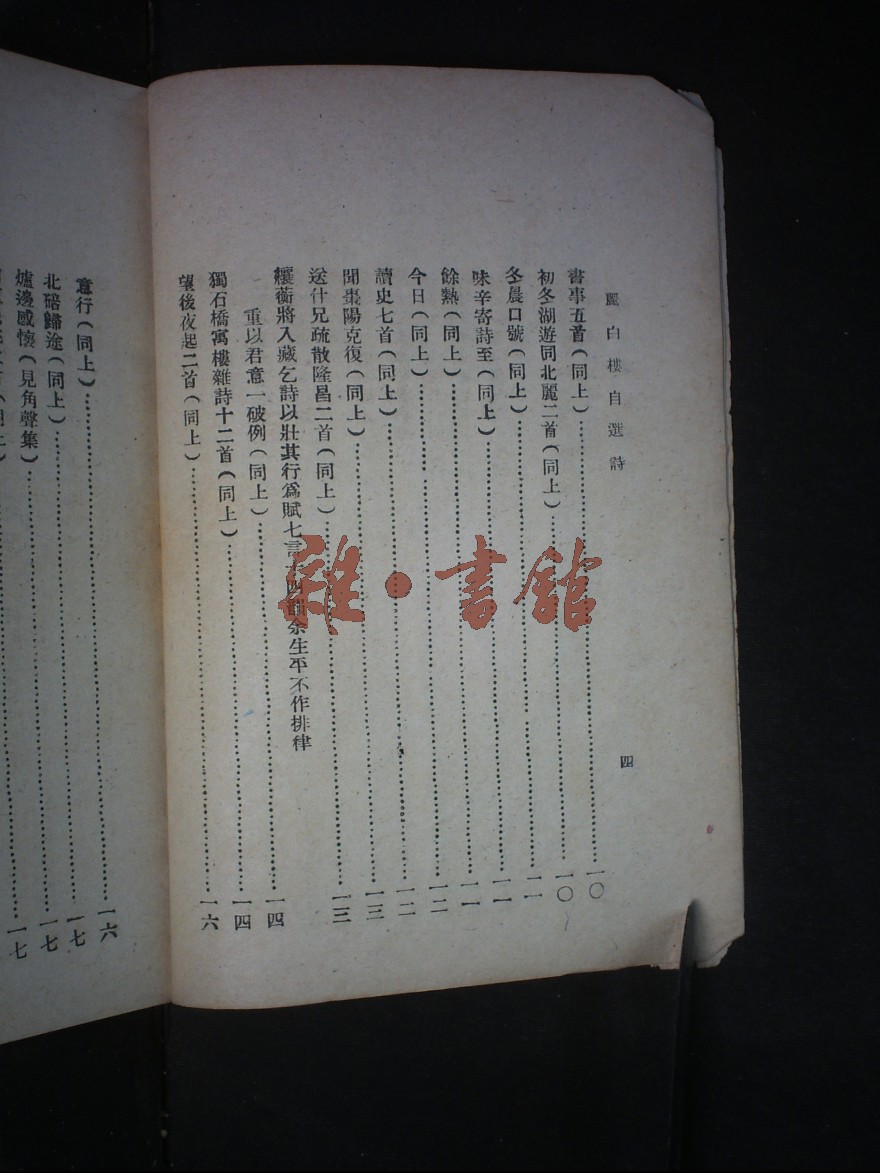 麗白樓自選詩
四
書事五首(同上)⋯⋯一〇
初冬湖遊同北麗二首(同上)⋯⋯一〇
冬晨口號(同上)⋯⋯一一
味辛寄詩至(同上)⋯⋯一一
餘熱(同上)⋯⋯一二
今日(同上)⋯⋯一二
讀史七首(同上)⋯⋯一三
聞棗陽克復(同上)⋯⋯一三
送什兄疏散隆昌二首(同上)
纕蘅將入藏乞詩以壯其行爲賦七言十四韻余生平不作排律
重以君意一破例(同上)⋯⋯一四
獨石橋寓樓雜詩十二首(同上)⋯⋯一四
望後夜起二首(同上)⋯⋯一六
意行(同上)⋯⋯一六
北碚歸途(同上)⋯⋯一七
爐邊感懷(見角聲集)⋯⋯一七
一七
雜·書館